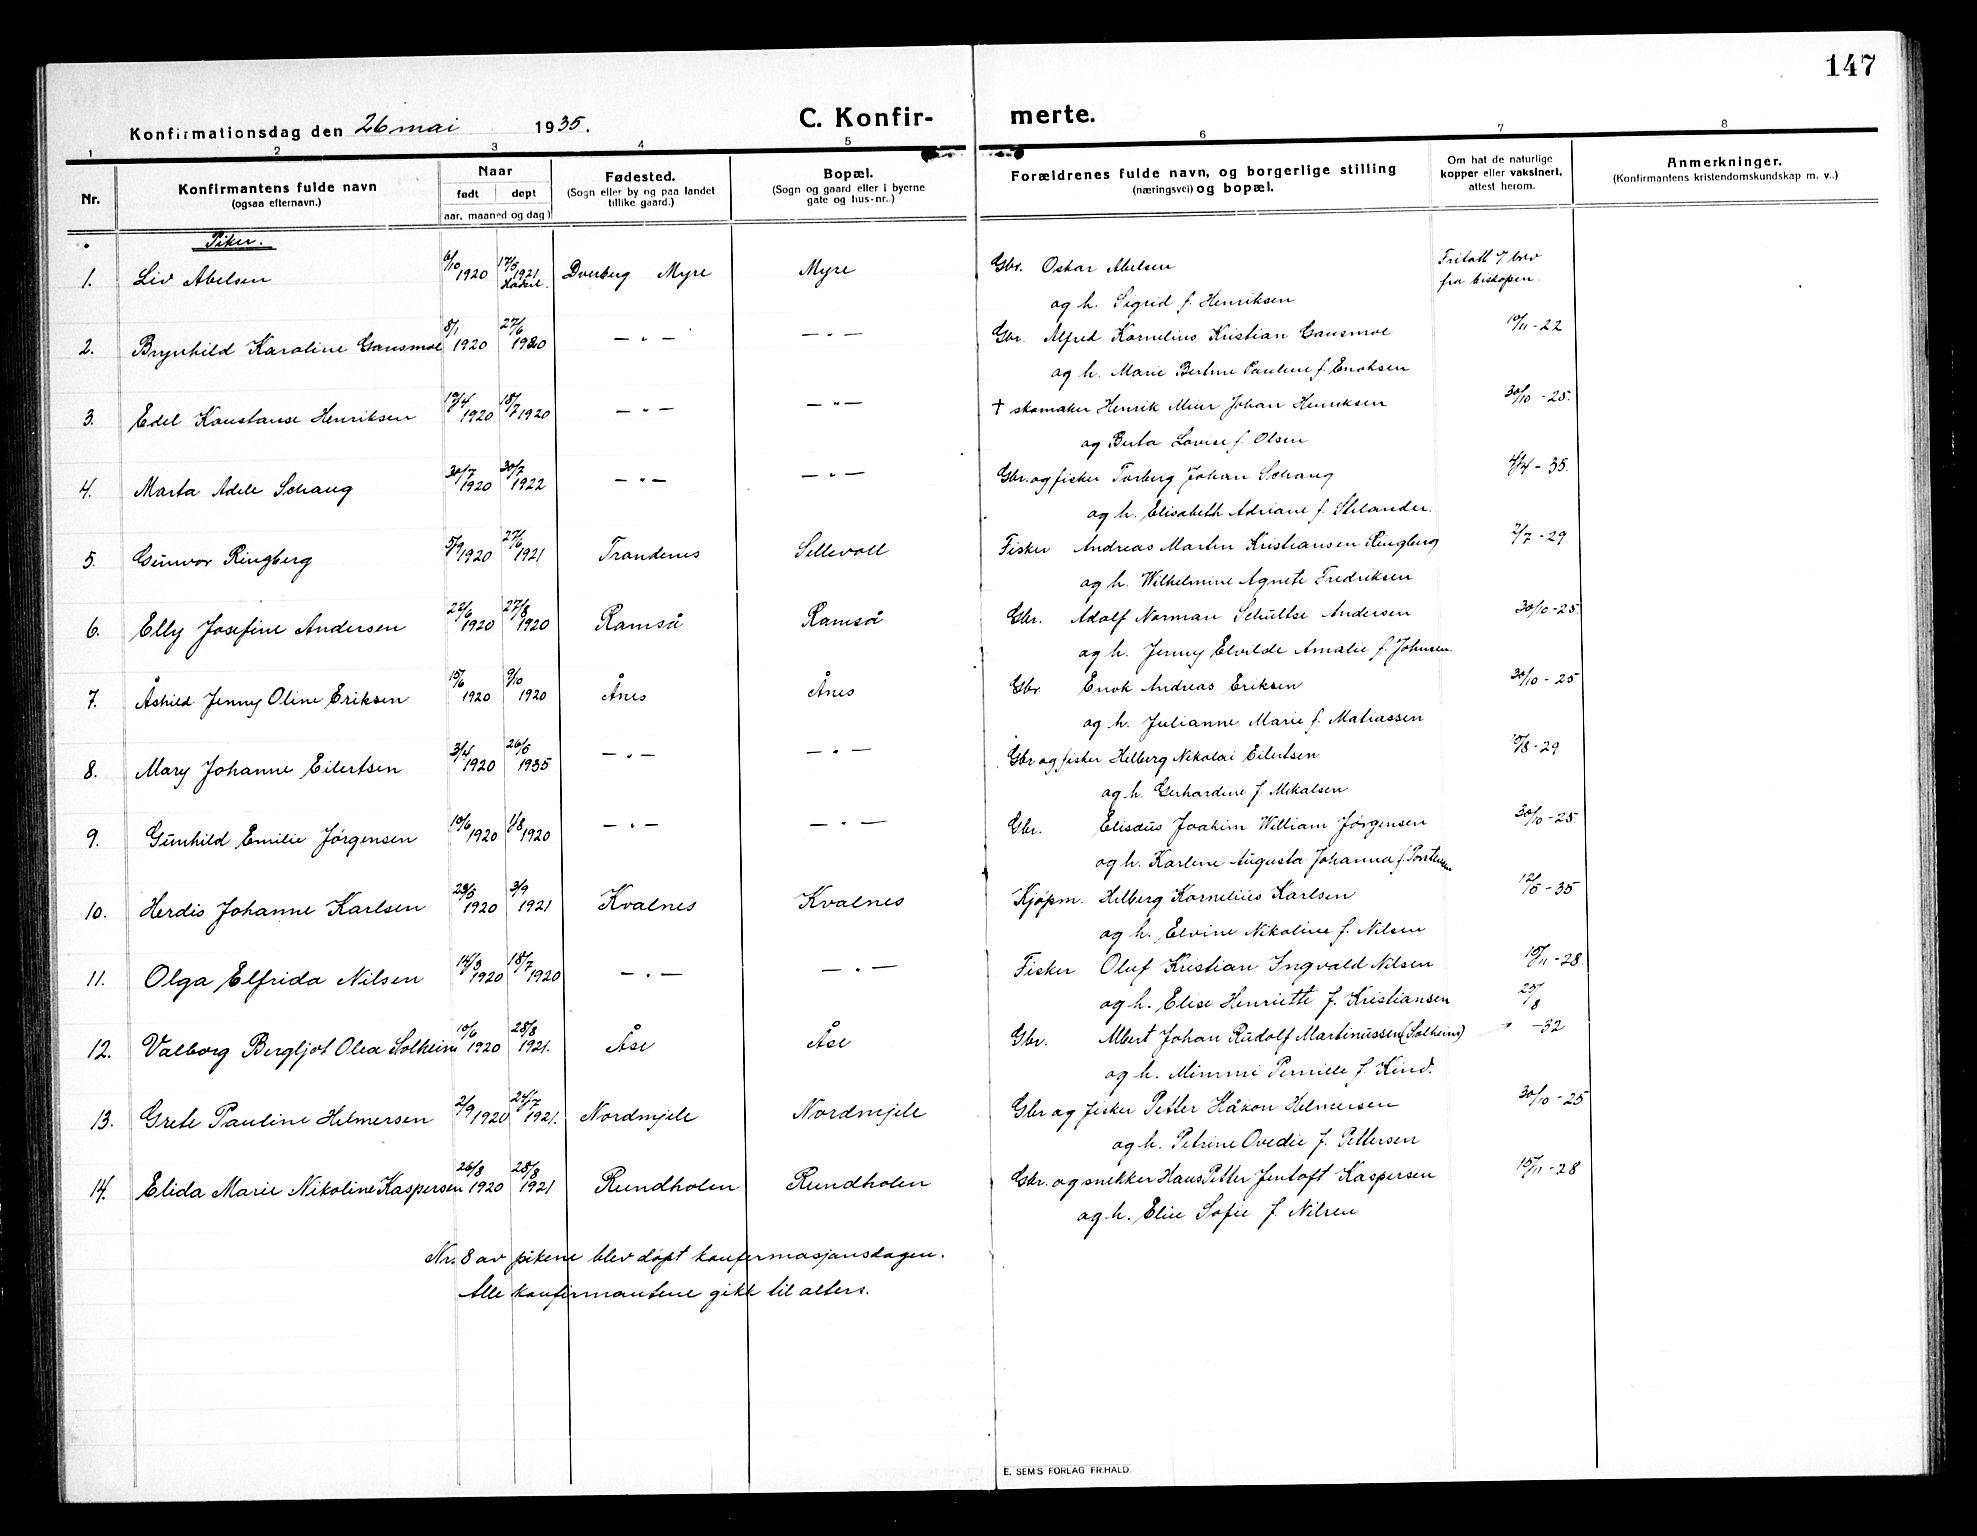 147
Konfirmationsdag den 26 mai 1935.
C. Konfir-
merte.
1 2 3 4 5 6 7 8
Nr.
Konfirmantens fulde navn
(ogsaa efternavn.)
Naar
født døpt
(aar, maaned og dag)
Fødested.
(Sogn eller by og paa landet
tillike gaard.)
Bopæl.
(Sogn og gaard eller i byerne
gate og hus-nr.)
Forældrenes fulde navn, og borgerlige stilling
(næringsvei) og bopæl.
Om hat de naturlige
kopper eller vaksinert,
attest herom.
Anmerkninger.
(Konfirmantens kristendomskundskap m. v..)
Piker.
1. Liv Abelsen 6/10 1920 17/5 1921 Dverberg Myre Myre Gbr. Oskar Abelsen Fritatt v/ brev
og h. Sigrid f. Henriksen fra biskopen.
2. Brynhild Karoline Gausmoe 8/1 1920 27/6 1920 — " — — " — Gbr. Alfred Kornelius Kristian Gausmoe 10/11 - 22
og h. Marie Bertine Pauline f. Enoksen
3. Edel Konstanse Henriksen 19/4 1920 18/7 1920 — " — — " — † skomaker Henrik Meier Johan Henriksen 30/10 - 25.
og Berta Lovise f. Olsen
4. Marta Adele Schaug 30/7 1920 30/7 1922 — " — — " — Gbr. og fisker Torberg Johan Schaug 4/4 - 35.
og h. Elisabeth Adriane f. Stelander.
5. Gunvor Ringberg 5/9 1920 27/6 1921 Trandenes Sellevoll Fisker Andreas Martin Kristiansen Ringberg 2/7 - 29
og h. Wilhelmine Agnete Fredriksen
6. Elly Josefine Andersen 22/6 1920 27/8 1920 Ramså Ramså Gbr. Adolf Norman Schultse Andersen 30/10 - 25
og h. Jenny Elvilde Amalie f. Johnsen.
7. Åshild Jenny Oline Eriksen 15/6 1920 9/10 1920 Ånes Ånes Gbr Enok Andreas Eriksen 30/10 - 25
og h. Julianne Marie f. Matiassen
8. Mary Johanne Eilertsen 3/4 1920 26/5 1935 — " — — " — Gbr og fisker Helberg Nikolai Eilertsen 10/8 - 29
og h. Gerhardine f. Mikalsen
9. Gunhild Emilie Jørgensen 10/6 1920 1/8 1920 — " — — " — Gbr. Elisdus Joakim William Jørgensen 30/10 - 25
og h. Karline Augusta Johanna f.
10. Herdis Johanne Karlsen 23/5 1920 3/9 1921 Kvalnes Kvalnes Kjøpm. Helberg Kornelius Karlsen 12/5 - 35
og h. Elvine Nikoline f. Nilsen
11. Olga Elfrida Nilsen 14/3 1920 18/7 1920 — " — — " — Fisker Oluf Kristian Ingvald Nilsen 15/11 - 28.
og h. Elise Henriette f. Kristiansen
12. Valborg Bergljot Olea Solheim 10/6 1920 28/8 1921. Åse Åse Gbr. Albert Johan Rudolf Martinussen (Solheim) 25/8 - 32
og h. Mimmi Pernille f. Kind.
13. Grete Pauline Helmersen 2/9 1920 24/7 1921. Nordmjele Nordmjele Gbr og fisker Petter Håkon Helmersen 30/10 - 25
og h. Petrine Ovedie f. Pettersen
14. Elida Marie Nikoline Kaspersen 26/8 1920 28/8 1921 Rundholen Rundholen Gbr. og snikker Hans Petter Jentoft Kaspersen 15/11 - 28
og h. Elise Sofie f. Nilsen
Nr. 8 av pikene blev døpt konfermasjonsdagen.
Alle konfirmantene gikk til alters.
E. SEM'S FORLAG FR.HALD.